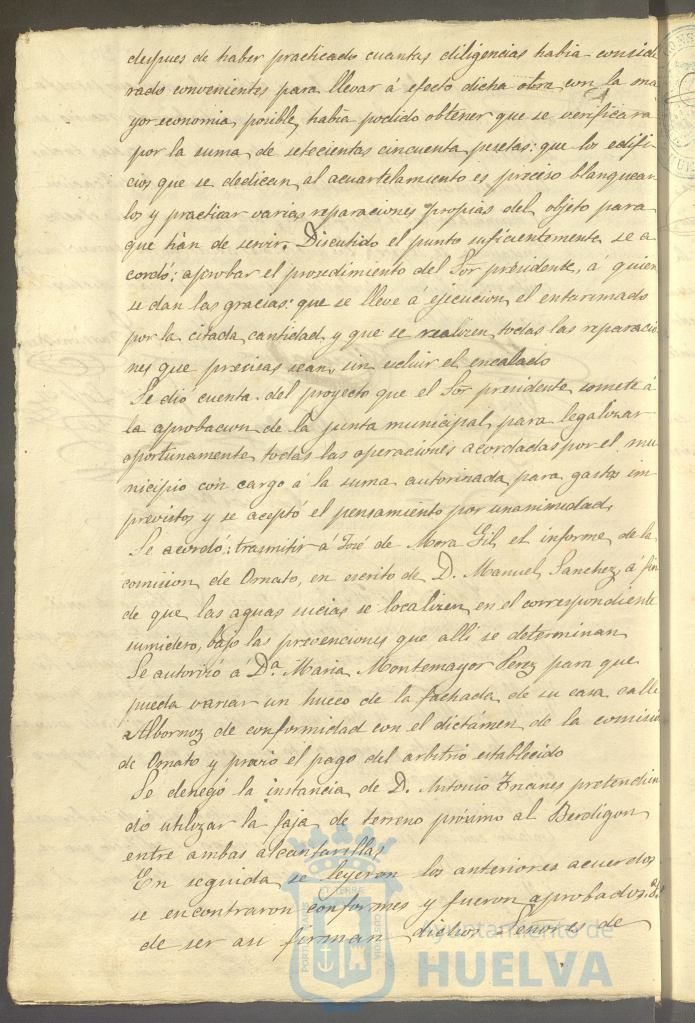 despues de haber practicado cuantas diligencias habia conside
rado convenientes para llevar á efecto dicha obra con la ma
yor economia posible, habia podido obtener que se verificara
por la suma de setecientas cincuenta pesetas: que los edifi
cios que se dedican al acuartelamiento es preciso blanquear
los y practicar varias reparaciones propias del objeto para
que han de servir. Discutido el punto suficientemente, se a
cordó: aprobar el procedimiento del Sor presidente, á quien
se dan las gracias: que se lleve á ejecucion el entarimado
por la citada cantidad y que se realizen todas las reparacio
nes que precisas sean, sin escluir el encalado
Se dió cuenta del proyecto que el Sor presidente somete á
la aprobacion de la junta municipal para legalizar
oportunamente todas las operaciones acordadas por el mu
nicipio con cargo á la suma autorizada para gastos im
previstos y se aceptó el pensamiento por unanimidad.
Se acordó: trasmitir á José de Mora Gil, el informe de la
comision de Ornato, en escrito de D. Manuel Sanchez, á fin
de que las aguas sucias se localizen en el correspondiente
sumidero, bajo las prevenciones que alli se determinan
Se autorizó á Dª Maria Montemayor Perez para que
pueda variar un hueco de la fachada de su casa calle
Albornoz de conformidad con el dictámen de la comision
de Ornato y prévio el pago del arbitrio establecido
Se denegó la instancia de D. Antonio pretendien
do utilizar la faja de terreno próximo al Berdigon
entre ambas alcantarillas
En seguida se leyeron los anteriores acuerdos
se encontraron conformes y fueron aprobados.
de ser asi firman dichos Señores de
PORTUS MARIS
ET TERRE
CUSTODIA
Ayuntamiento de
HUELVA